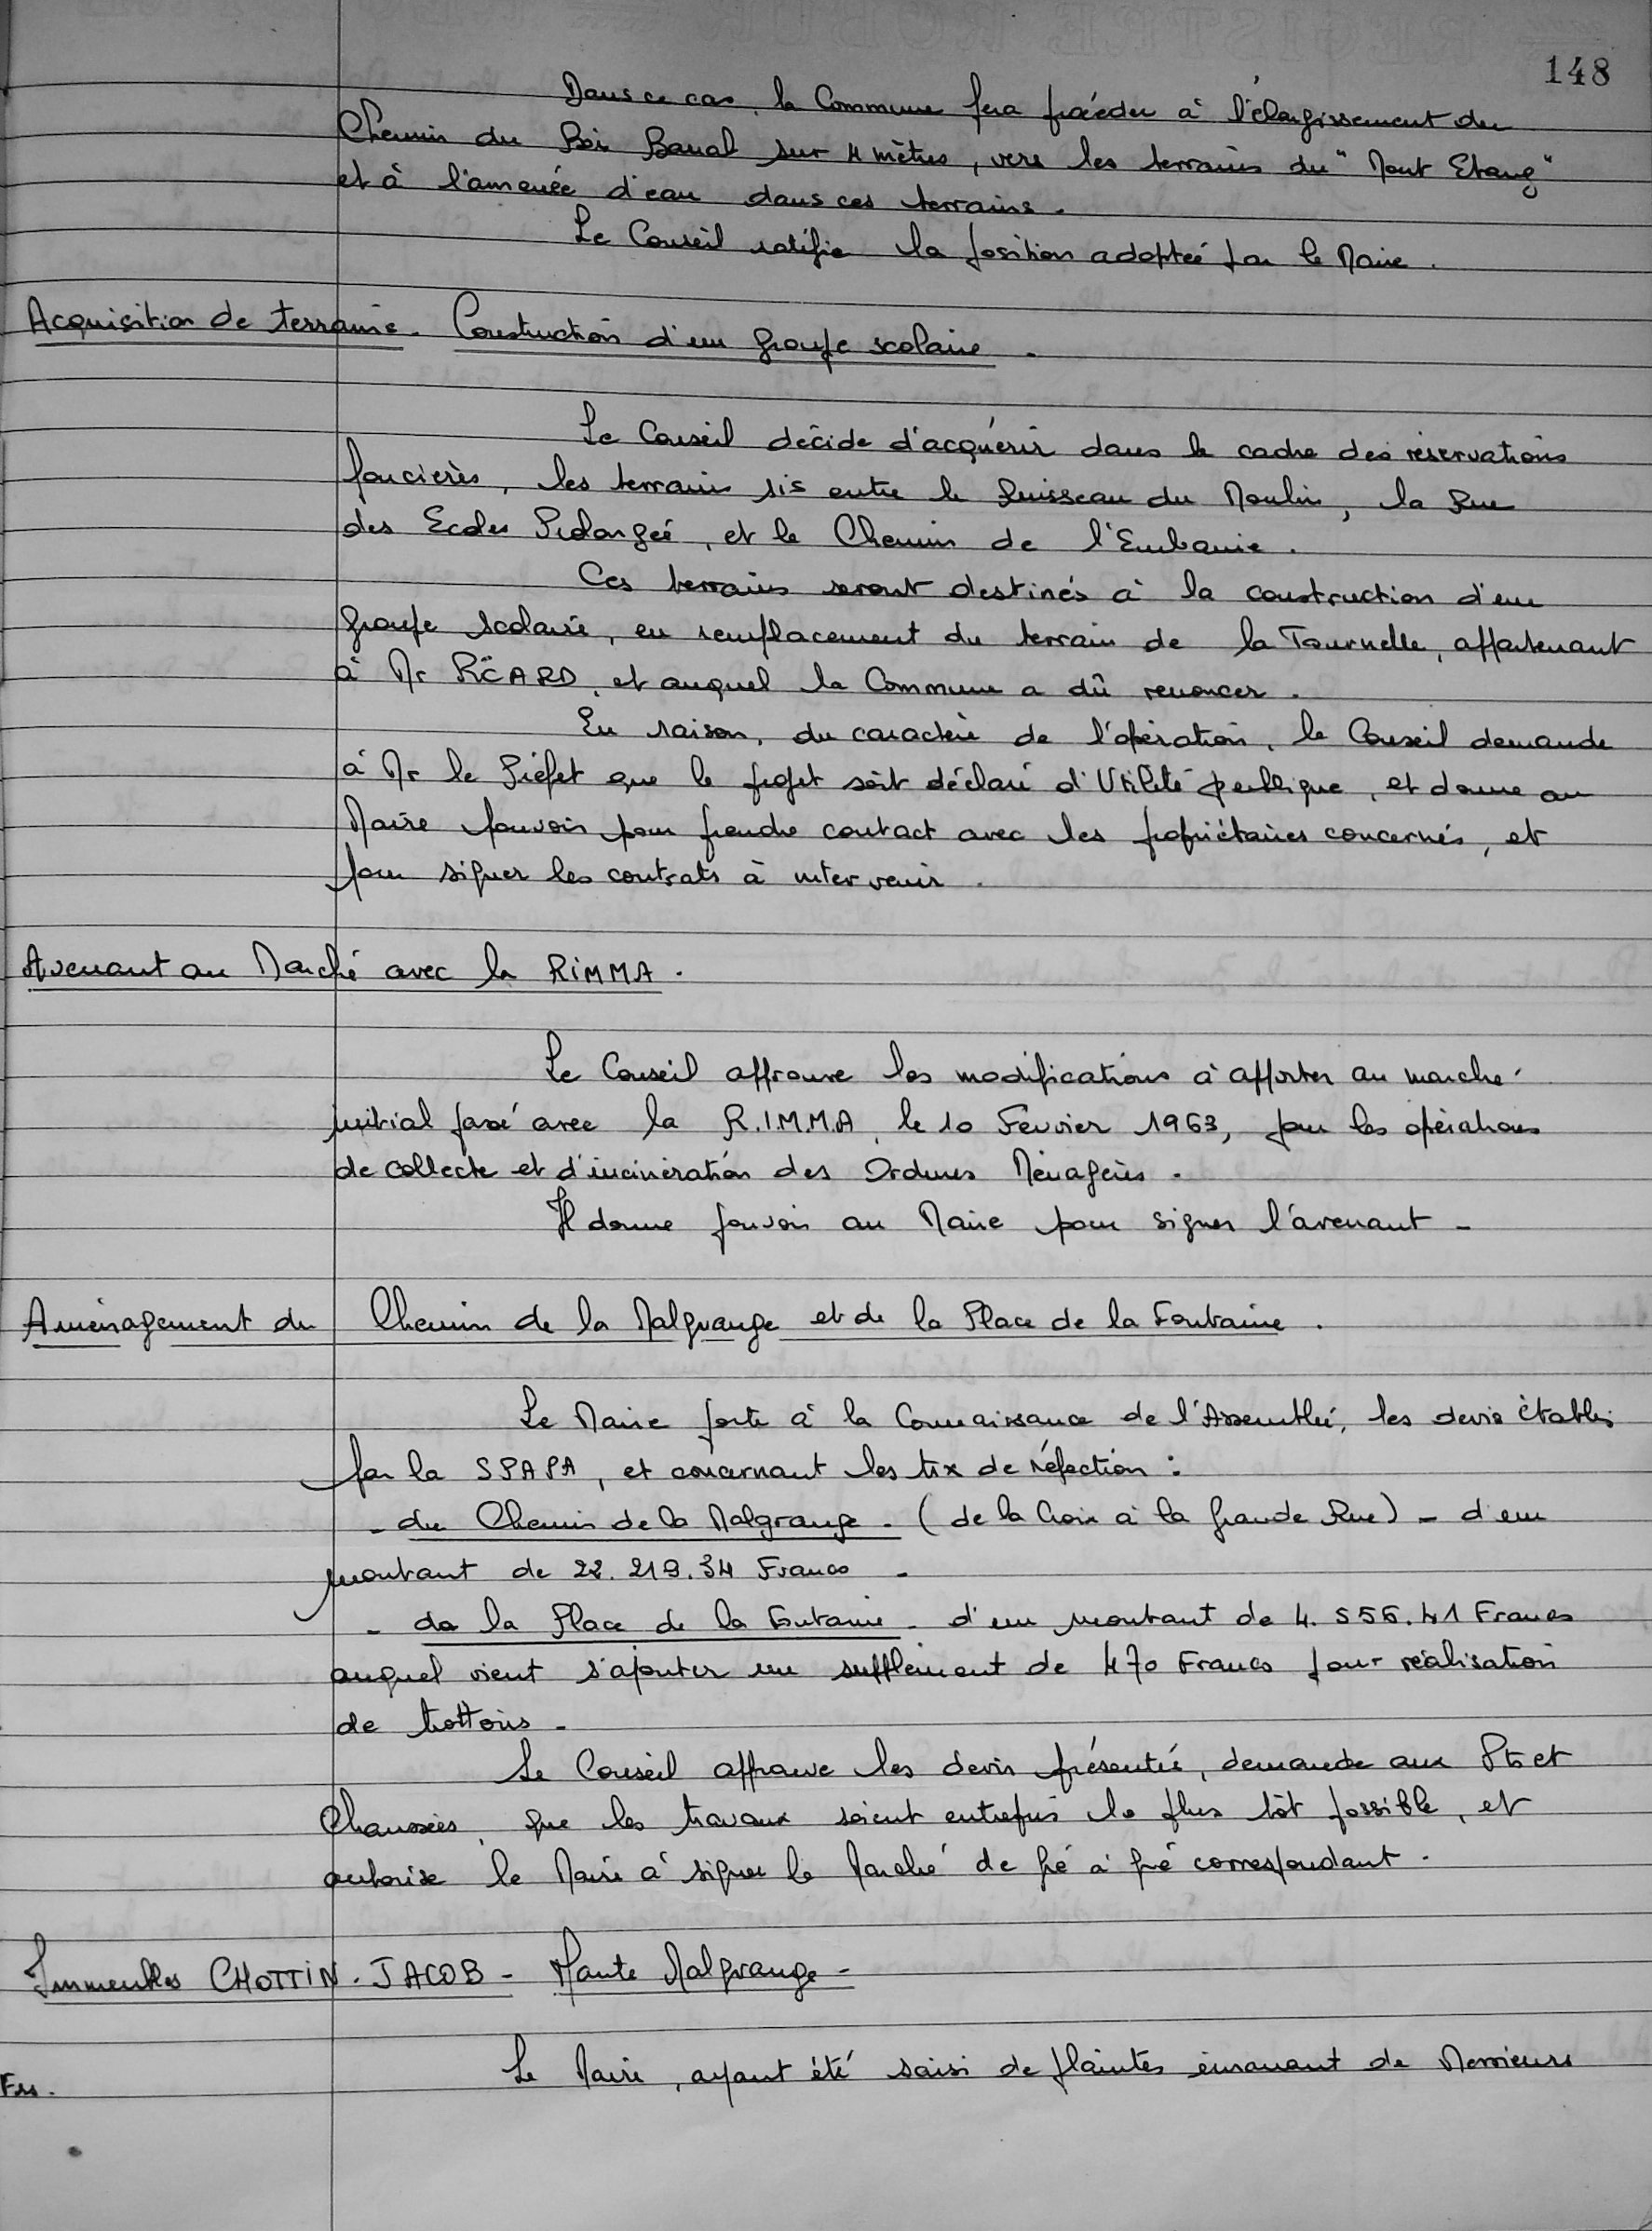 148
Dans ce cas, la Commune fera procéder à l'élargissement du
Chemin du Bois Banal sur 4 mètres, vers les terrains du "Mont Etang"
et à l'amenée d'eau dans ces terrains.
Le Conseil ratifie la position adoptée par le Maire.
Acquisition de terrains. Construction d'un groupe scolaire.
Le Conseil décide d'acquérir dans le cadre des réservations
foncières, les terrains sis entre le Ruisseau du Moulin, la Rue
des Ecoles Prolongée, et le Chemin de l'Embanie.
Ces terrains seront destinés à la construction d'un
groupe scolaire, en remplacement du terrain de la Tournelle, appartenant
à Mr RICARD, et auquel la Commune a dû renoncer.
En raison, du caractère de l'opération, le Conseil demande
à Mr le Préfet que le projet soit déclaré d'Utilité publique, et donne au
Maire pouvoir pour prendre contact avec les propriétaires concernés, et
pour signer les contrats à intervenir.
Avenant au Marché avec la RIMMA.
Le Conseil approuve les modifications à apporter au marché
initial passé avec la R.I.M.M.A, le 10 Février 1963, pour les opérations
de collecte et d'incinération des Ordures Ménagères.
Il donne pouvoir au Maire pour signer l'avenant -
Aménagement du Chemin de la Malgrange et de la Place de la Fontaine.
Le Maire porte à la Connaissance de l'Assemblée, les devis établis
par la SPAPA, et concernant les tvx de réfection :
- du Chemin de la Malgrange - (de la Croix à la Grande Rue) - d'un
montant de 22.219.34 Francs -
- de la Place de la Fontaine - d'un montant de 4.556.41 Francs
auquel vient s'ajouter un supplément de 470 Francs pour réalisation
de trottoirs -
Le Conseil approuve les devis présentés, demande aux Pts et
Chaussées, que les travaux soient entrepris le plus tôt possible, et
autorise le Maire à signer le Marché de gré à gré correspondant.
Immeubles CHOTTIN - JACOB - Haute Malgrange -
Le Maire, ayant été saisi de plaintes émanant de Messieurs